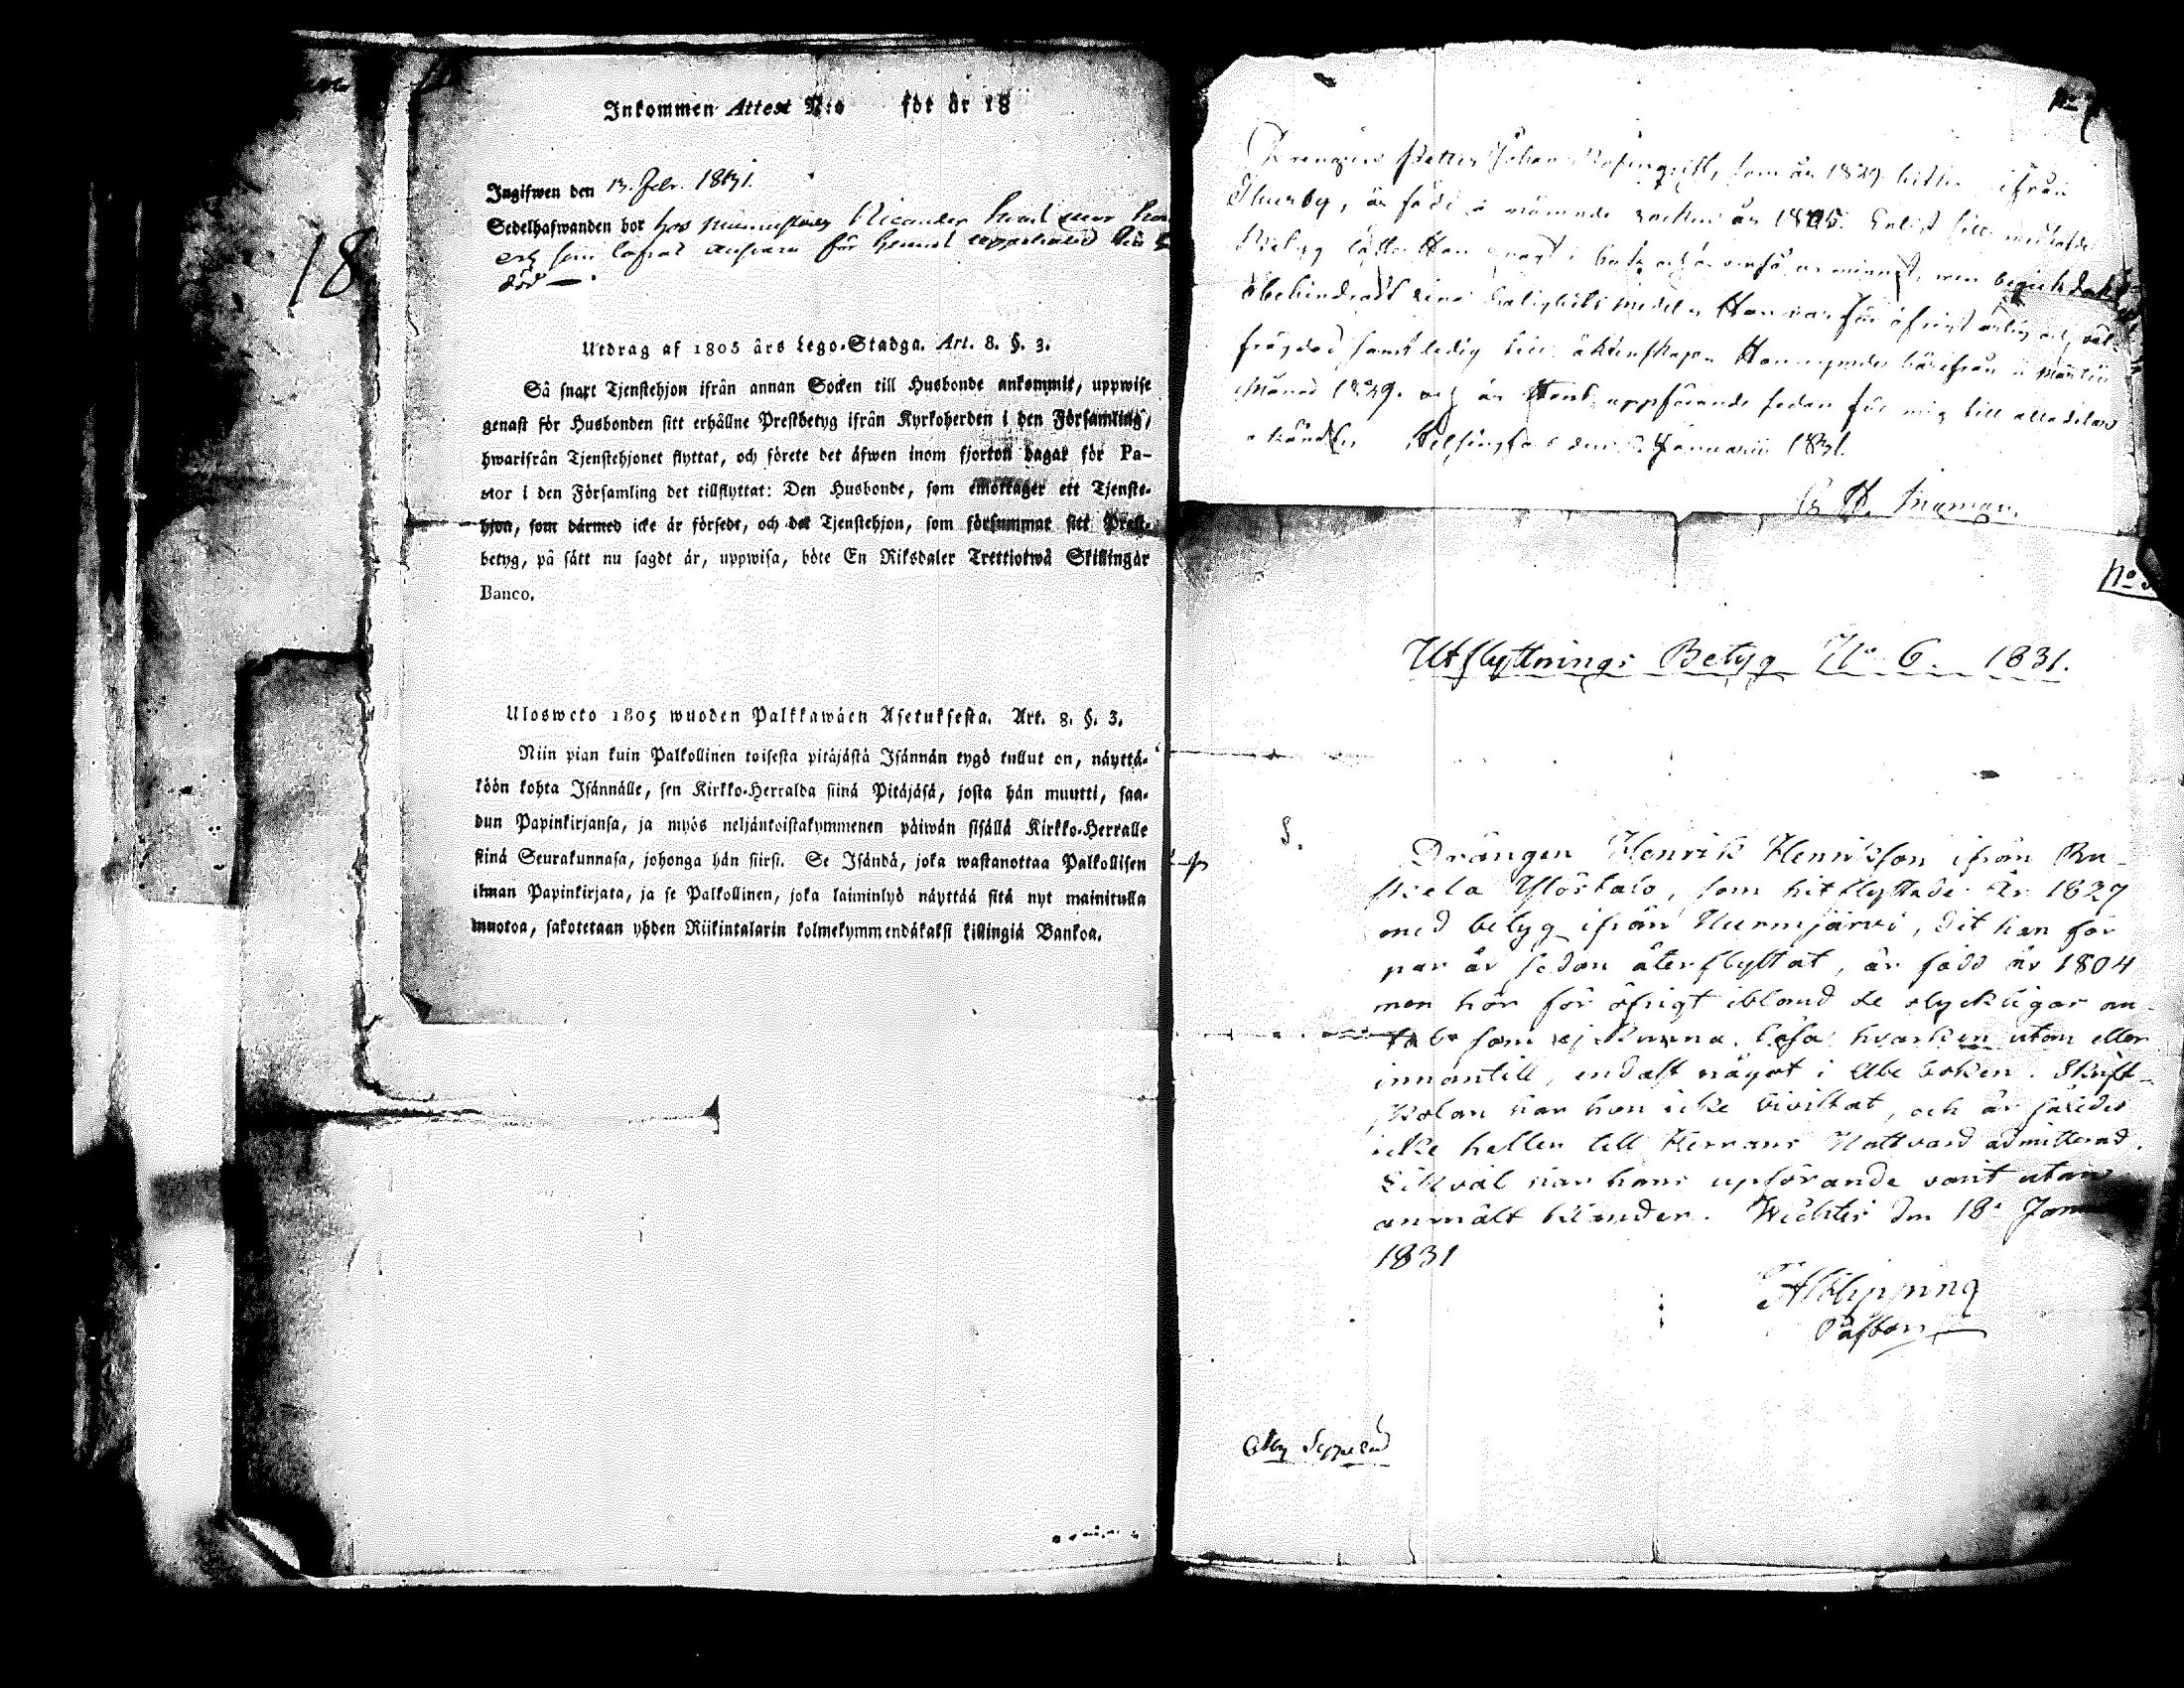 18
Inkommen Attest N:o för år 18
Ingifwen den 13. Febr. 1831.
Sedelhafwanden bor hos Nicander
och som lofvat ansvara för hennes uppehälle
död —.
Utdrag af 1805 års Lego-Stadga. Art. 8. §. 3.
Så snart Tjenstehjon ifrån annan Socken till Husbonde ankommit, uppwise
genast för Husbonden sitt erhållne Prestbetyg ifrån Kyrkoherden i den Församling,
hwarifrån Tjenstehjonet flyttat, och förete det äfwen inom fjorton dagar för Pa-
stor i den Församling det tillflyttat: Den Husbonde, som emottager ett Tjenste-
hjon, som därmed icke är försedt, och det Tjenstehjon, som försummar sitt Prest-
betyg, på sätt nu sagdt är, uppwisa, böte En Riksdaler Trettiotwå Skillingar
Banco.
Ulosweto 1805 wuoden Palkkawäen Asetuksesta. Art. 8. §. 3.
Niin pian kuin Palkollinen toisesta pitäjästä Isännän tygö tullut on, näyttä-
köön kohta Isännälle, sen Kirkko-Herralda siinä Pitäjäsä, josta hän muutti, saa-
dun Papinkirjansa, ja myös neljänkoistakymmenen päiwän sisällä Kirkko-Herralle
siinä Seurakunnasa, johonga hän siirsi. Se Isändä, joka wastanottaa Palkollisen
ilman Papinkirjata, ja se Palkollinen, joka laiminlyö näyttää sitä nyt mainitulla
muotoa, sakotetaan yhden Riikintalarin kolmekymmendäkaksi killingiä Bankoa.
No
Drengen Petter Johan som år 1829 hitkom ifrån
Thusby, är född i nämnde socken år 1805. Enligt sitt medhafde
Betyg läser Han i bok och
obehindradt sina salighets medel. Han är för öfrigt ärlig och väl-
frägdad samt ledig till äktenskap. Han härifrån i Martii
Månad 1829. och är Hans uppförande sedan för mig till alla delar
okändt. Helsingfors den Januarii 1831.
No
Utflyttnings Betyg No 6. 1831.
Drängen Henrik Henriksson ifrån Ru-
skela Ylöstalo, som hitflyttade År 1827
med betyg ifrån Nurmijärvi, dit han för
par år sedan återflyttat, är född år 1804
men hör för öfrigt ibland de olyckligas an-
tal som ej kunna läsa hvarken utan eller
innantill, endast något i Abc boken. Skrift-
skolan har han icke bivistat, och är således
icke heller till Herrans Nattvard admitterad.
Likväl har hans upförande varit utan
anmält klander. Wichtis den 18 Jan
1831
Pastor